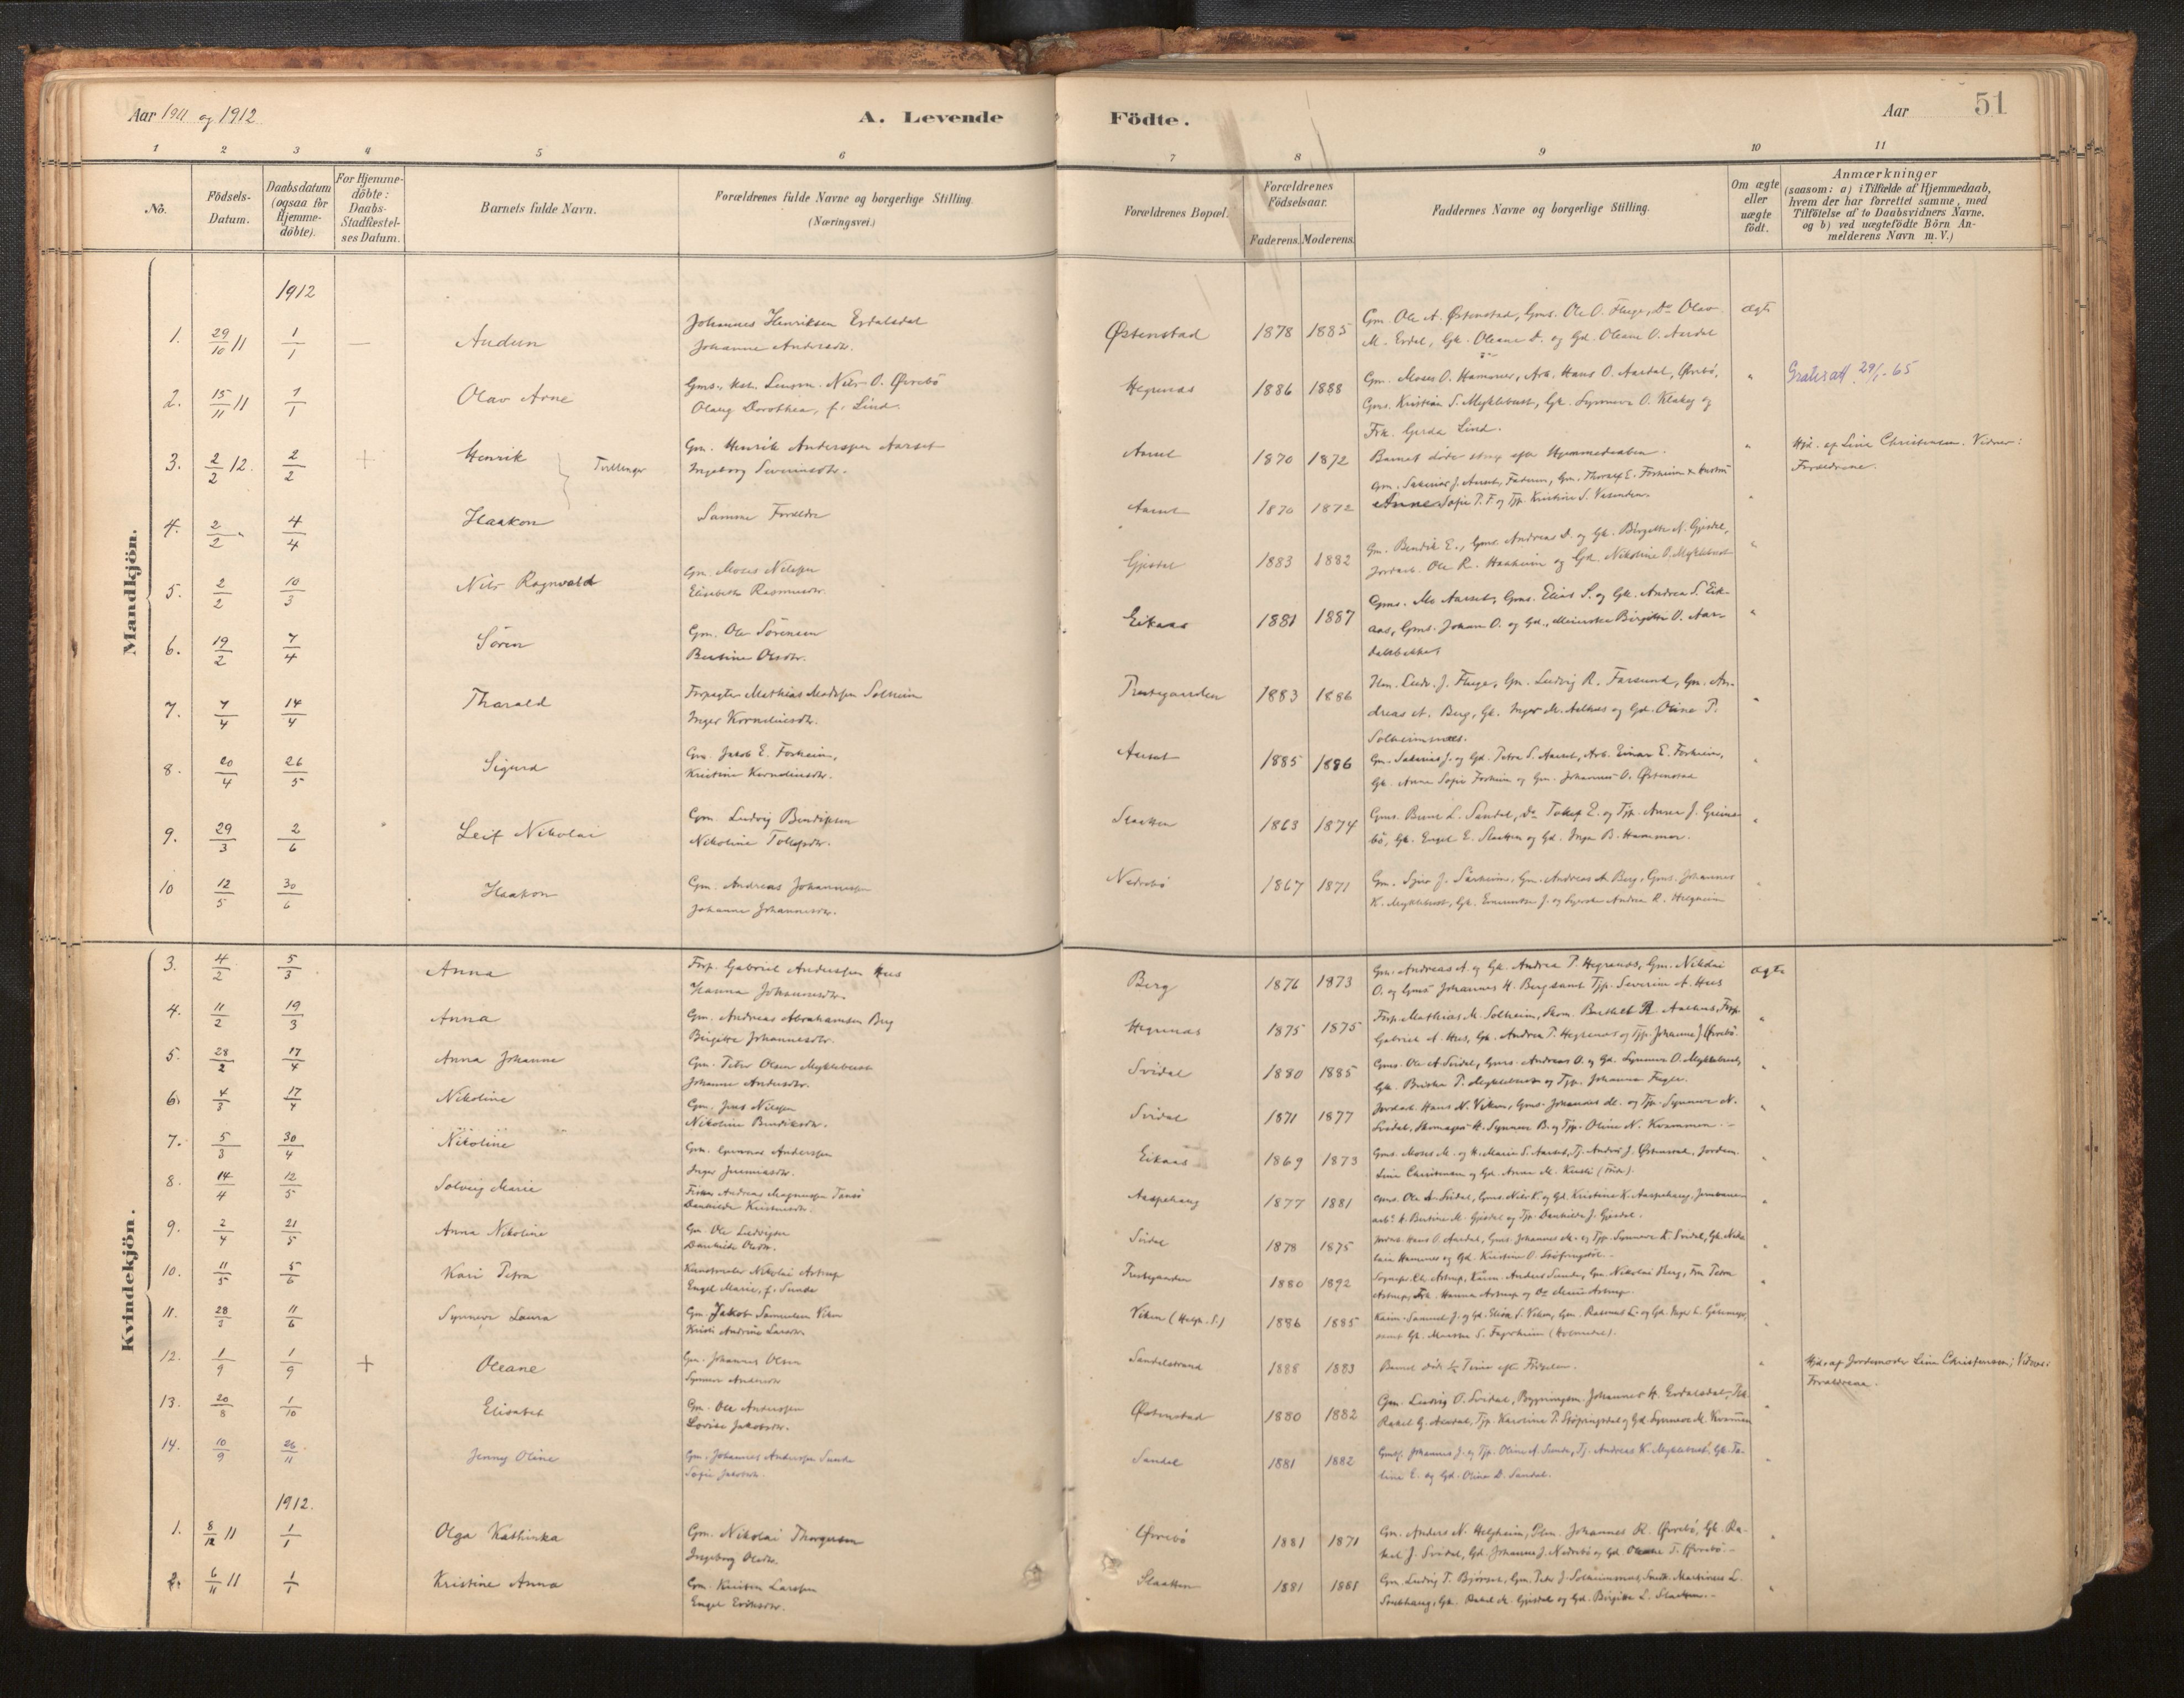 Aar 1911 og 1912
A. Levende Födte.
Aar
51
1 2 3 4 5 6 7 8 9 10 11
No.
Födsels-Datum.
Daabsdatum (ogsaa for Hjemme-döbte).
For Hjemme-döbte: Daabs-Stadfæstel-ses Datum.
Barnets fulde Navn.
Forældrenes fulde Navne og borgerlige Stilling. (Næringsvei.)
Forældrenes Bopæl.
Forældrenes Födselsaar.
Faderens. Moderens.
Faddernes Navne og borgerlige Stilling.
Om ægte eller uægte födt.
Anmærkninger
(saasom: a) i Tilfælde af Hjemmedaab,
hvem der har forrettet samme, med
Tilföielse af to Daabsvidners Navne.
og b) ved uægtefödte Börn An-
melderens Navn m.V.)
Mandkjön.
1912
1. 29/10 11 1/1 — Audun Johannes Henriksen Erdalsdal Østenstad 1878 1885 Gm. Ole A. Østenstad, Gms. Ole O. Fluge, Do Olav ægte
Johanne Andersdtr. M. Erdal, Gk. Oleane D. og Gd. Oleane O. Aardal
2. 15/11 11 1/1 Olav Arne Gms., Lensm. Nils O. Øvrebö Hegrenæs 1886 1888 Gm. Moses O. Hammer, Arb. Hans O. Aardal, Øvrebö, " Gratisatt. 29/1-65
Olaug Dorothea, f. Lind. Gms. Kristian S. Myklebust, Gk. Synneva O. Klakeg og
Frk. Gerda Lind.
3. 2/2 12. 2/2 + Henrik } Tvillinger Gm. Henrik Anderssen Aarset Aarset 1870 1872 Barnet döde strax efter Hjemmedaaben. " Hjd. af Line Christensen. Vidner:
Ingeborg Severinsdtr. Forældrene.
4. 2/2 " 4/4 Haakon Samme Forældre Aarset 1870 1872 Gm. Sakarias J. Aarset, Faderen, Gm. Thorolf E. Forheim & Hustru "
Anne Sofie T. F. og Tjp. Kristine S. Vasenden.
5. 2/2 10/3 Nils Ragnvald Gm. Moses Nilssen Gjesdal 1883 1882 Gm. Bendik E., Gms. Andreas D. og Gk. Birgitte N. Gjesdal, "
Elisabeth Rasmusdtr. Jordarb. Ole R. Haaheim og Gd. Nikoline O. Myklebust
6. 19/2 7/4 Sören Gm. Ole Sörensen Eikaas 1881 1887 Gms. Aarset, Gms. Elias S. og Gk. Andrea S. Eik- "
Bertine Olsdtr. aas, Gms. Johan O. og Gd., Meierske Birgitte O. Aar-
dalsbakke
7. 7/4 14/4 Tharald Forpagter Mathias Madssen Solheim Prestgaarden 1883 1886 Hm. Ludv. J. Fluge, Gm. Ludvig R. Farsund, Gm. An- "
Inger Korneliusdtr. dreas A. Berg, Gk. Inger M. Aalhus og Gd. Oline P.
Solheimsnæs.
8. 20/4 26/5 Sigurd Gm. Jakob E. Forheim, Aarset 1885 1886 Gm. Sakarias J. og Gd. Petra S. Aarset, Arb. Einar E. Forheim, "
Kristine Korneliusdtr. Gk. Anne Sofie Forheim og Gm. Johannes O. Østenstad
9. 29/3 2/6 Leif Nikolai Gm. Ludvig Bendiksen Slaatten 1863 1874 Gms. Bernt L. Sandal, Do Tollef E. og Tjp. Anna J. Grims- "
Nikoline Tollefsdtr. bö, Gk. Engel E. Slaatten og Gd. Inga B. Hammer.
10 12/5 30/6 Haakon Gm. Andreas Johannessen Nedrebö 1867 1871 Gm. Sjur J. Sarheim, Gm. Andreas A. Berg, Gms. Johannes "
Johanne Johannesdtr. K. Myklebust, Gk. J. og Syerske Andrea R. Helgheim
Kvindekjön.
3. 4/2 5/3 Anna Forp. Gabriel Anderssen Hus Berg 1876 1873 Gm. Andreas A. og Gk. Andrea P. Hegrenæs, Gm. Nikolai ægte
Hanna Johannesdtr. O. og Gms. Johannes H. Berg samt Tjp. Severine A. Hus
4. 11/2 19/3 Anna Gm. Andreas Abrahamsen Berg Hegrenæs 1875 1875 Forp. Mathias M. Solheim, Skom. Berthel R. Aalhus, Forp. "
Birgitte Johannesdtr. Gabriel A. Hus, Gk. Andrea P. Hegrenæs og Tjp. Johanne J. Øvrebö.
5. 28/2 17/4 Anna Johanne Gm. Peter Olsen Myklebust Svidal 1880 1885 Gms. Ole A. Svidal, Gms. Andreas O. og Gd. Synneve O. Myklebust, "
Johanne Andersdtr. Gk. P. Myklebust og Tjp. Johanna Fugle.
6. 4/3 17/4 Nikoline Gm. Jens Nilssen Svidal 1871 1877 Jordarb. Hans N. Viken, Gms. Johannes M. og Tjp. Synneve N. "
Nikoline Bendiksdtr. Svidal, Skomager H. Synneve B. og Tjp. Oline N. Kvammen.
7. 5/3 30/4 Nikoline Gm. Gunnar Anderssen Eikaas 1869 1873 Gms. Moses M. og H. Marie S. Aarset, Tj. Anders J. Østenstad, Jordem. "
Inger Jeremiasdtr. Line Christensen og Gd. Anne M. (Förde).
8. 14/4 12/5 Solveig Marie Fisker Andreas Magnussen Tansö Aaspehaug 1877 1881 Gms. Ole A. Svidal, Gms. Nils K. og Gd. Kristine K. Aaspehaug, "
Danhilda Kristensdtr. arb. H. Bertine M. Gjesdal og Tjp. Danhilda J. Gjesdal.
9. 2/4 21/5 Anna Nikoline Gm. Ole Ludvigsen Svidal 1878 1875 Hans O. Aardal, Gms. Johannes M. og Tjp. Synneve K. Svidal, Gk. Niko- "
Danhilda Olsdtr. laia Hammer og Gd. Kristine O. Stöfringsdal.
10. 11/5 5/6 Kari Petra Kunstmaler Nikolai Astrup Prestgaarden 1880 1892 Sognep. Chr. Astrup, Kaarm. Anders Sunde, Gm. Nikolai Berg, Fru Petra "
Engel Marie, f. Sunde Astrup, Frk. Hanna Astrup og Do Marie Astrup.
11. 28/3 11/6 Synneve Laura Gm. Jakob Samuelsen Viken Viken (Helgh. S.) 1886 1885 Kaarm. Samuel J. og Gd. Elisa S. Viken, Gm. Rasmus L. og Gd. Inger L. "
Kristi Andrine Larsdtr. samt Gk. S. Fagerheim (Holmedal).
12. 1/9 1/9 + Oleane Gm. Johannes Olsen Sandalstrand 1888 1883 Barnet döde 1/2 Time efter Födselen. " Hjd. af Jordemoder Line Christensen; Vidner:
Synneve Andersdtr. Forældrene.
13. 20/8 1/10 Elisabet Gm. Ole Anderssen Østenstad 1880 1882 Gm. Ludvig O. Svidal, Bygningsm. Johannes H. Erdalsdal, Frk. "
Lovise Jakobsdtr. Rakel G. Aardal, Tjp. Karoline P. Stöfringsdal og Gd. Synneve M. Kvammen
14. 10/9 26/11 Jenny Oline Gm. Johannes Anderssen Sunde Sandal 1881 1882 Johannes J. og Tjp. Oline A. Sunde, Tj. Andreas K. Myklebust, Gk. Ta- "
Sofie Jakobsdtr. line E. og Gd. Oline D. Sandal.
1912.
1. 8/12 11 1/1 Olga Kathinka Gm. Nikolai Thorgersen Øvrebö 1881 1871 Gm. Anders N. Helgheim, Johannes R. Øvrebö, Gk. Ra- "
Ingeborg Olsdtr. kel J. Svidal, Gd. Johanne J. Nedrebö og Gd. Oleane T. Øvrebö.
2. 6/11 11 1/1 Kristine Anna Gm. Kristen Larssen Slaatten 1881 1881 Gm. Ludvig T. Bjørset, Gm. Peter J. Solheimsnæs, Smed Martinus L. "
Engel Eriksdtr. Gk. Rakel M. Gjesdal og Gd. Birgitte L. Slaatten.